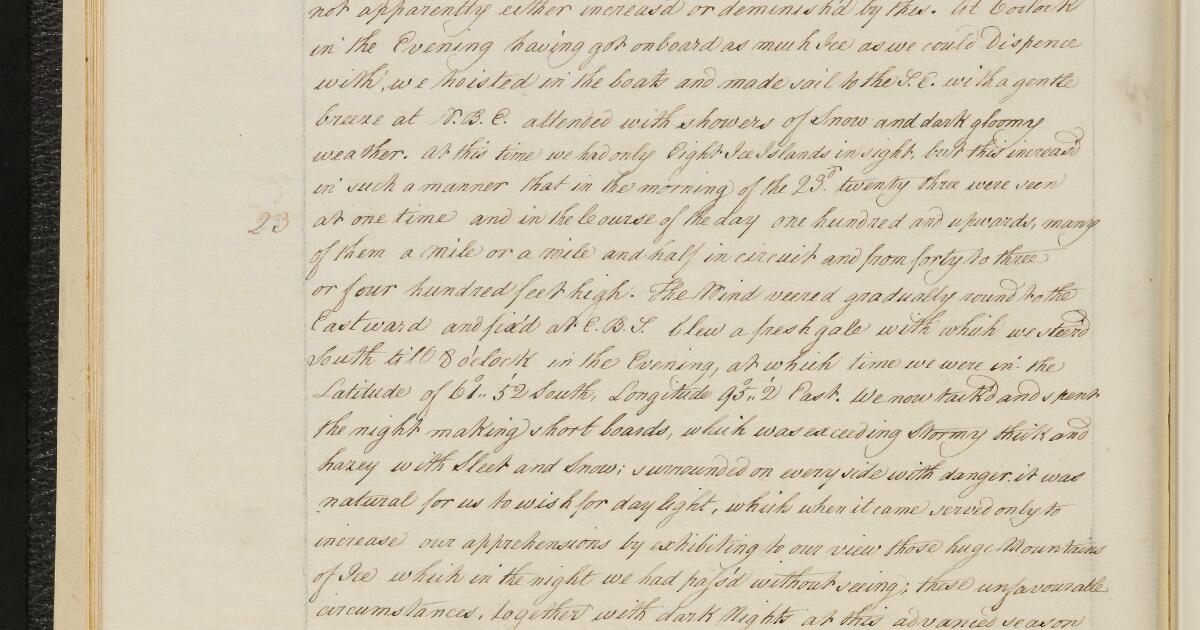 not apparently either increas'd or deminish'd by this. at 6 oclock
in the Evening having got onboard as much Ice as we could Dispence
with, we hoisted in the boats and made sail to the S.E. with a gentle
breeze at N.B.E. attended with showers of Snow and dark gloomy
weather. at this time we had only Eight Ice Islands in sight, but this increas'd
in such a manner that in the morning of the 23.d twenty three were seen
23
at one time and in the Course of the day one hundred and upwards, many
of them a Mile or a mile and half in circuit and from forty to three
or four hundred feet high. The Wind veered gradually round to the
Eastward and fix'd at E.B.S. blew a fresh gale with which we steer'd
South till 8 oclock in the Evening, at which time we were in the
Latitude of 61°.. 52' South, Longitude 95°.. 2' East. We now tack'd and spent
the night making short boards, which was exceeding Stormy thick and
hazey with Sleet and Snow; surrounded on every side with danger it was
natural for us to wish for day light, which when it came served only to
increase our apprehensions by exhibiting to our view those huge Mountains
of Ice which in the night we had pass'd without seeing; these unfavourable
circumstances, together with dark Nights at this advanced season